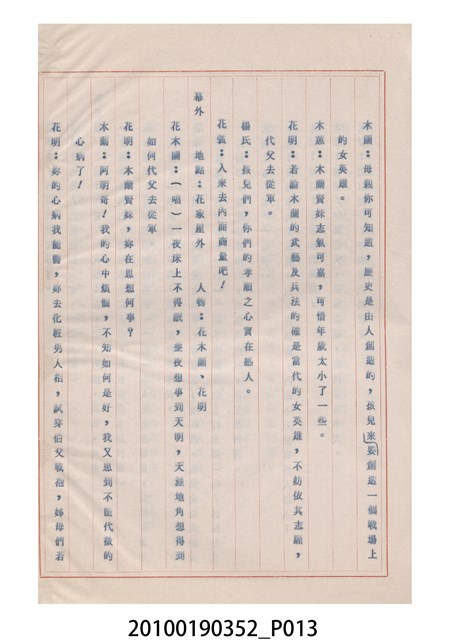 木蘭：母親你可知道，歷史是由人創造的，孩兒要來創造一個戰場上
的女英雄。
木蕙：木蘭賢妹志氣可嘉，可惜年歲太小了一些。
花明：若論木蘭的武藝及兵法的確是當代的女英雄，不妨依其志願，
代父去從軍。
楊氏：孩兒們，你們的孝順之心實在感人。
花弧：入來去內面商量吧！
幕外 地點：花家屋外 人物：花木蘭、花明
花木蘭：（唱）一夜床上不得眠，整夜想事到天明，天涯地角想得到
如何代父去從軍
花明：木蘭賢妹，妳在思想何事？
木蘭：阿明哥！我的心中煩惱，不知如何是好，我又思到不能代爺的
心病了！
花明：妳的心病我能醫，妳去化粧男人相，試穿伯父戰袍，姊母們若
20100190352_P013